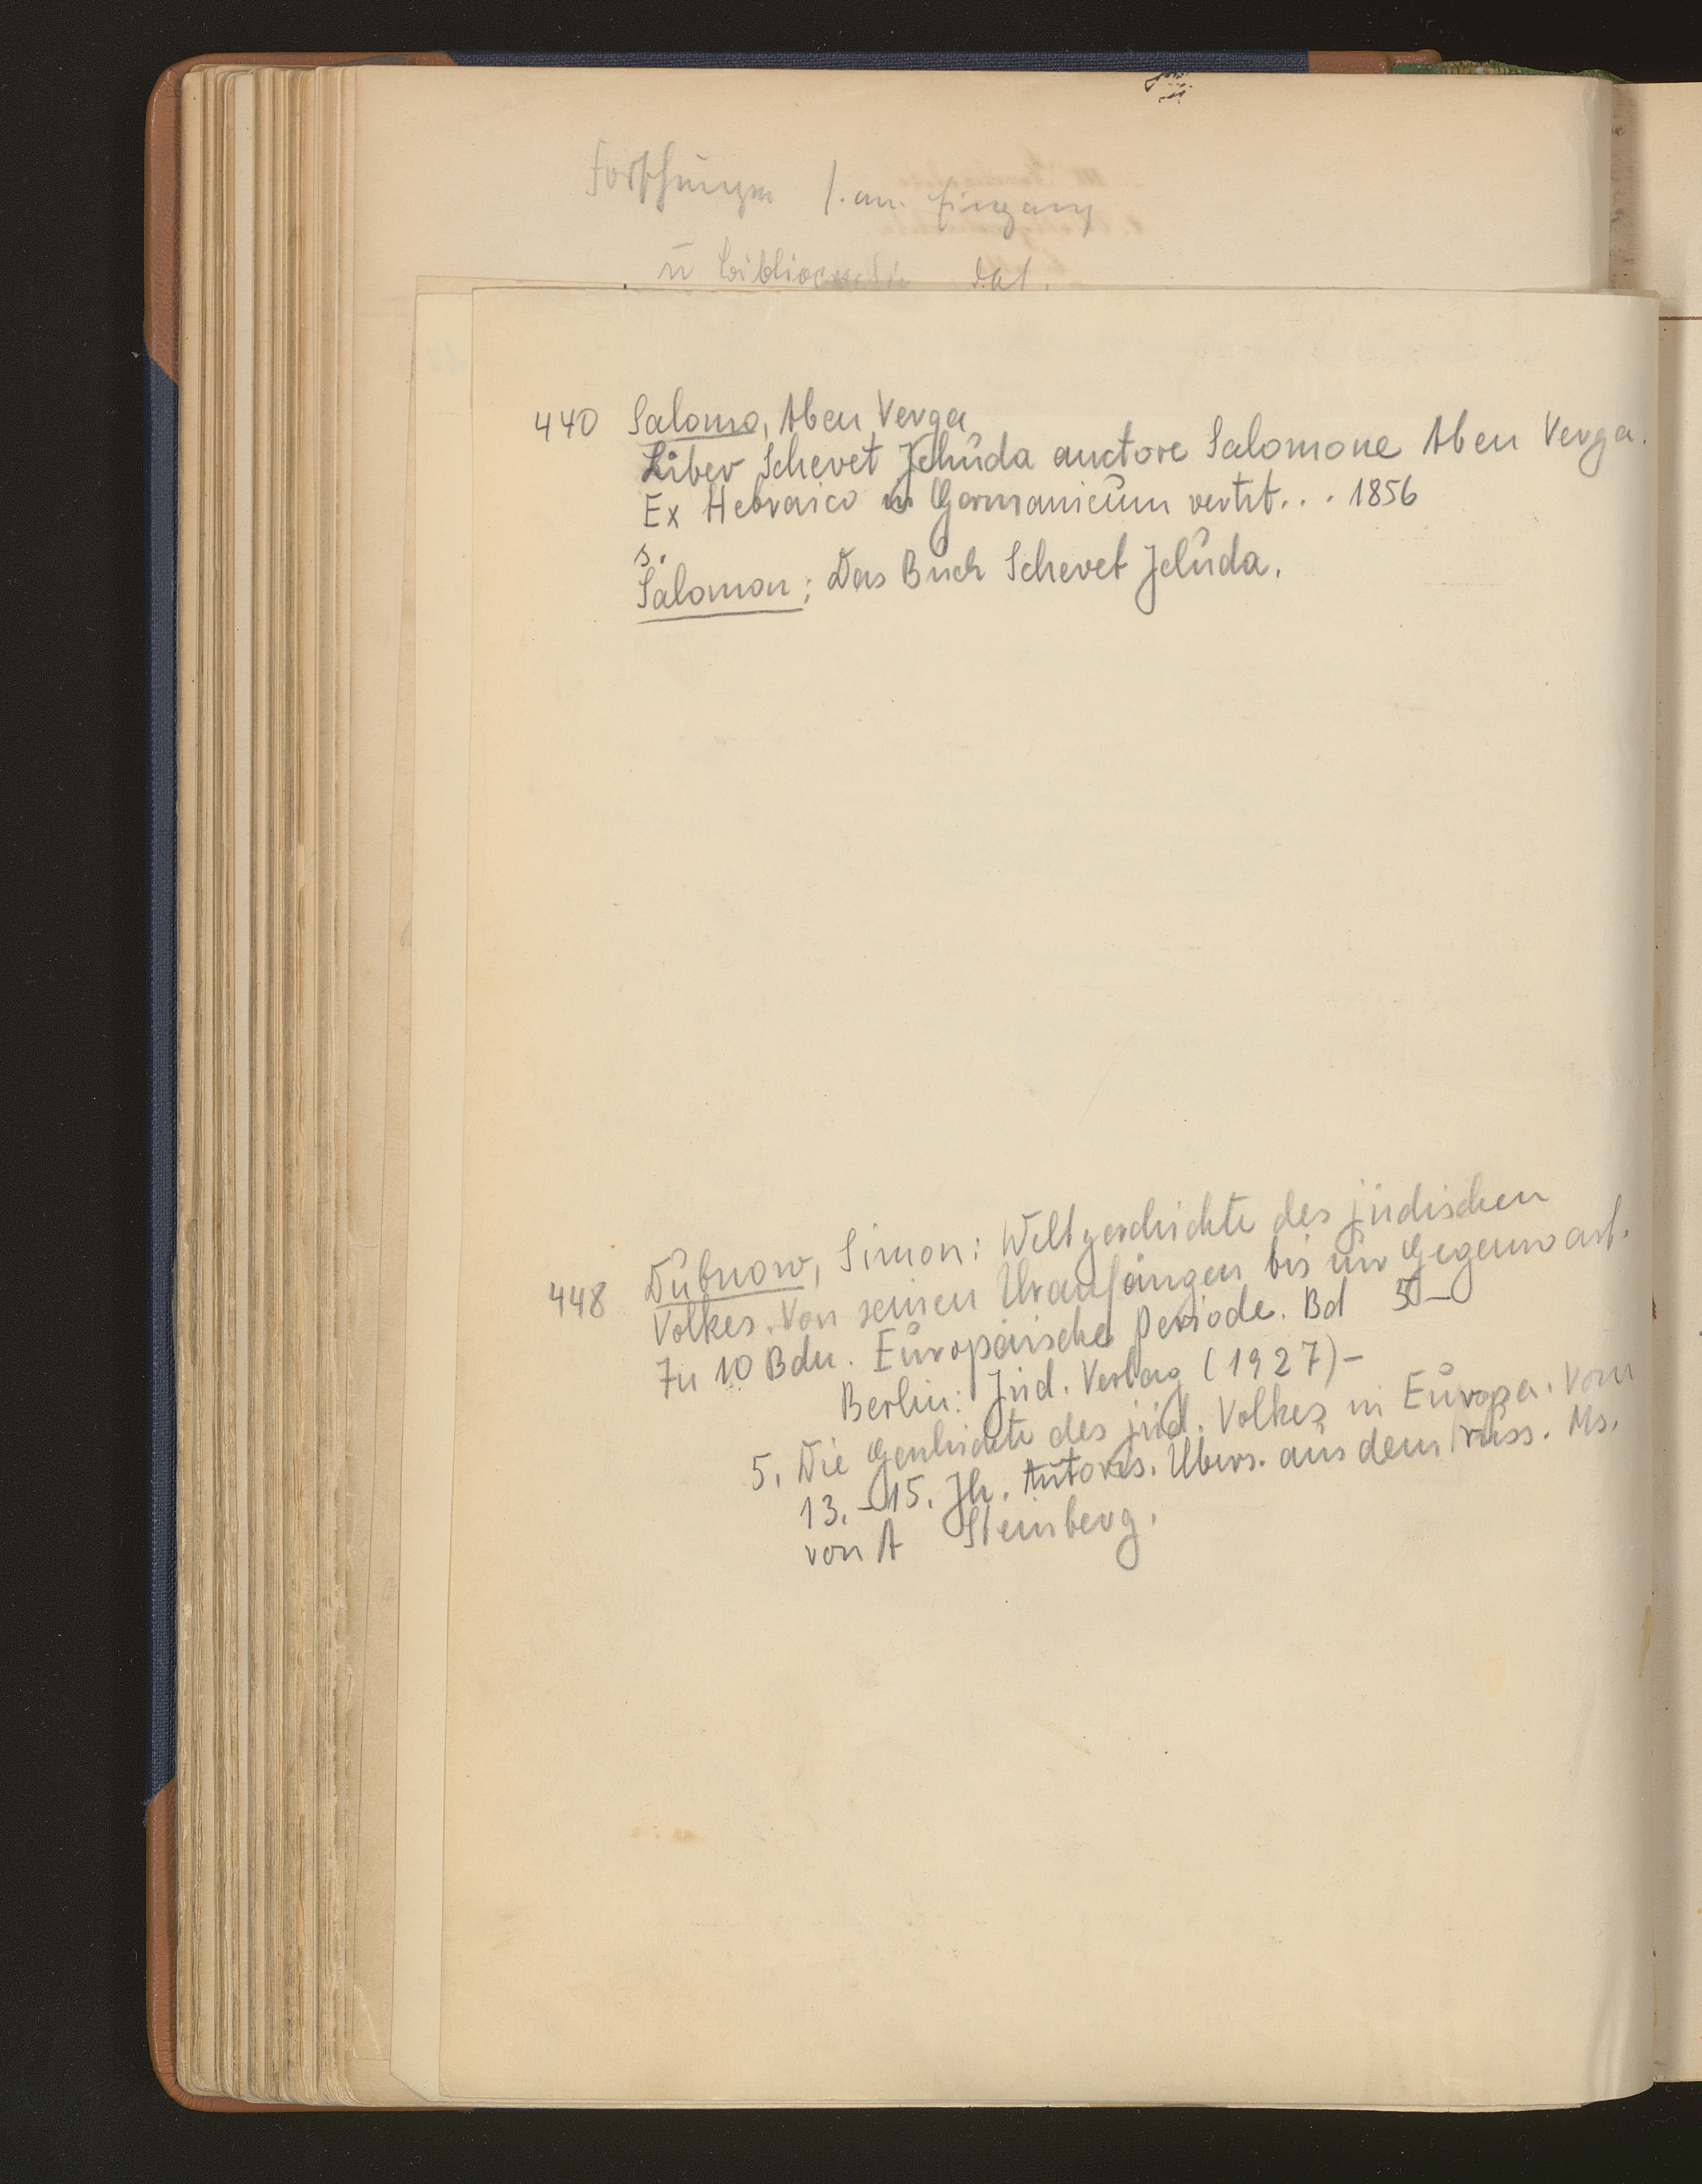 Forschungen s. am Eingang
u dat.
440 Salomo, Aben Verga
Liber Schevet Jehuda auctore Salomone Aben Verga.
Ex Hebraico in Germanicum vertit... 1856
s.
Salomon: Das Buch Schevet Jehuda.
448 Dubnow, Simon: Weltgeschichte des jüdischen
Volkes. Von seinen Uranfängen bis zur Gegenwart.
In 10 Bdn. Europäische Periode. Bd 5–
Berlin: Jüd. Verlag (1927)–
5. Die Geschichte des jüd. Volkes in Europa. Vom
13.–15. Jh. Autoris. Übers. aus dem russ. Ms.
von A Steinberg.